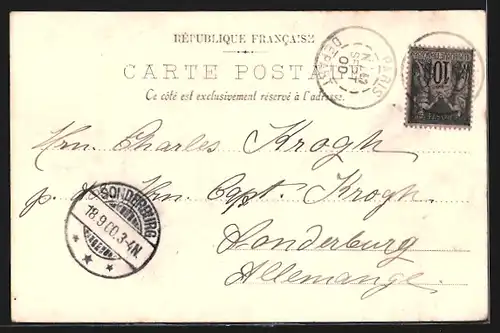 RÉPUBLIQUE FRANÇAISE
CARTE POSTALE
Ce côté est exclusivement réservé à l'adresse.
PARIS
DEPART
SEPT
00
10
Hrn Charles Krogh
Hrn. Cpt. Krogh.
Sonderburg
Allemange.
SONDERBURG
18.9.00.3-4N.
* * *